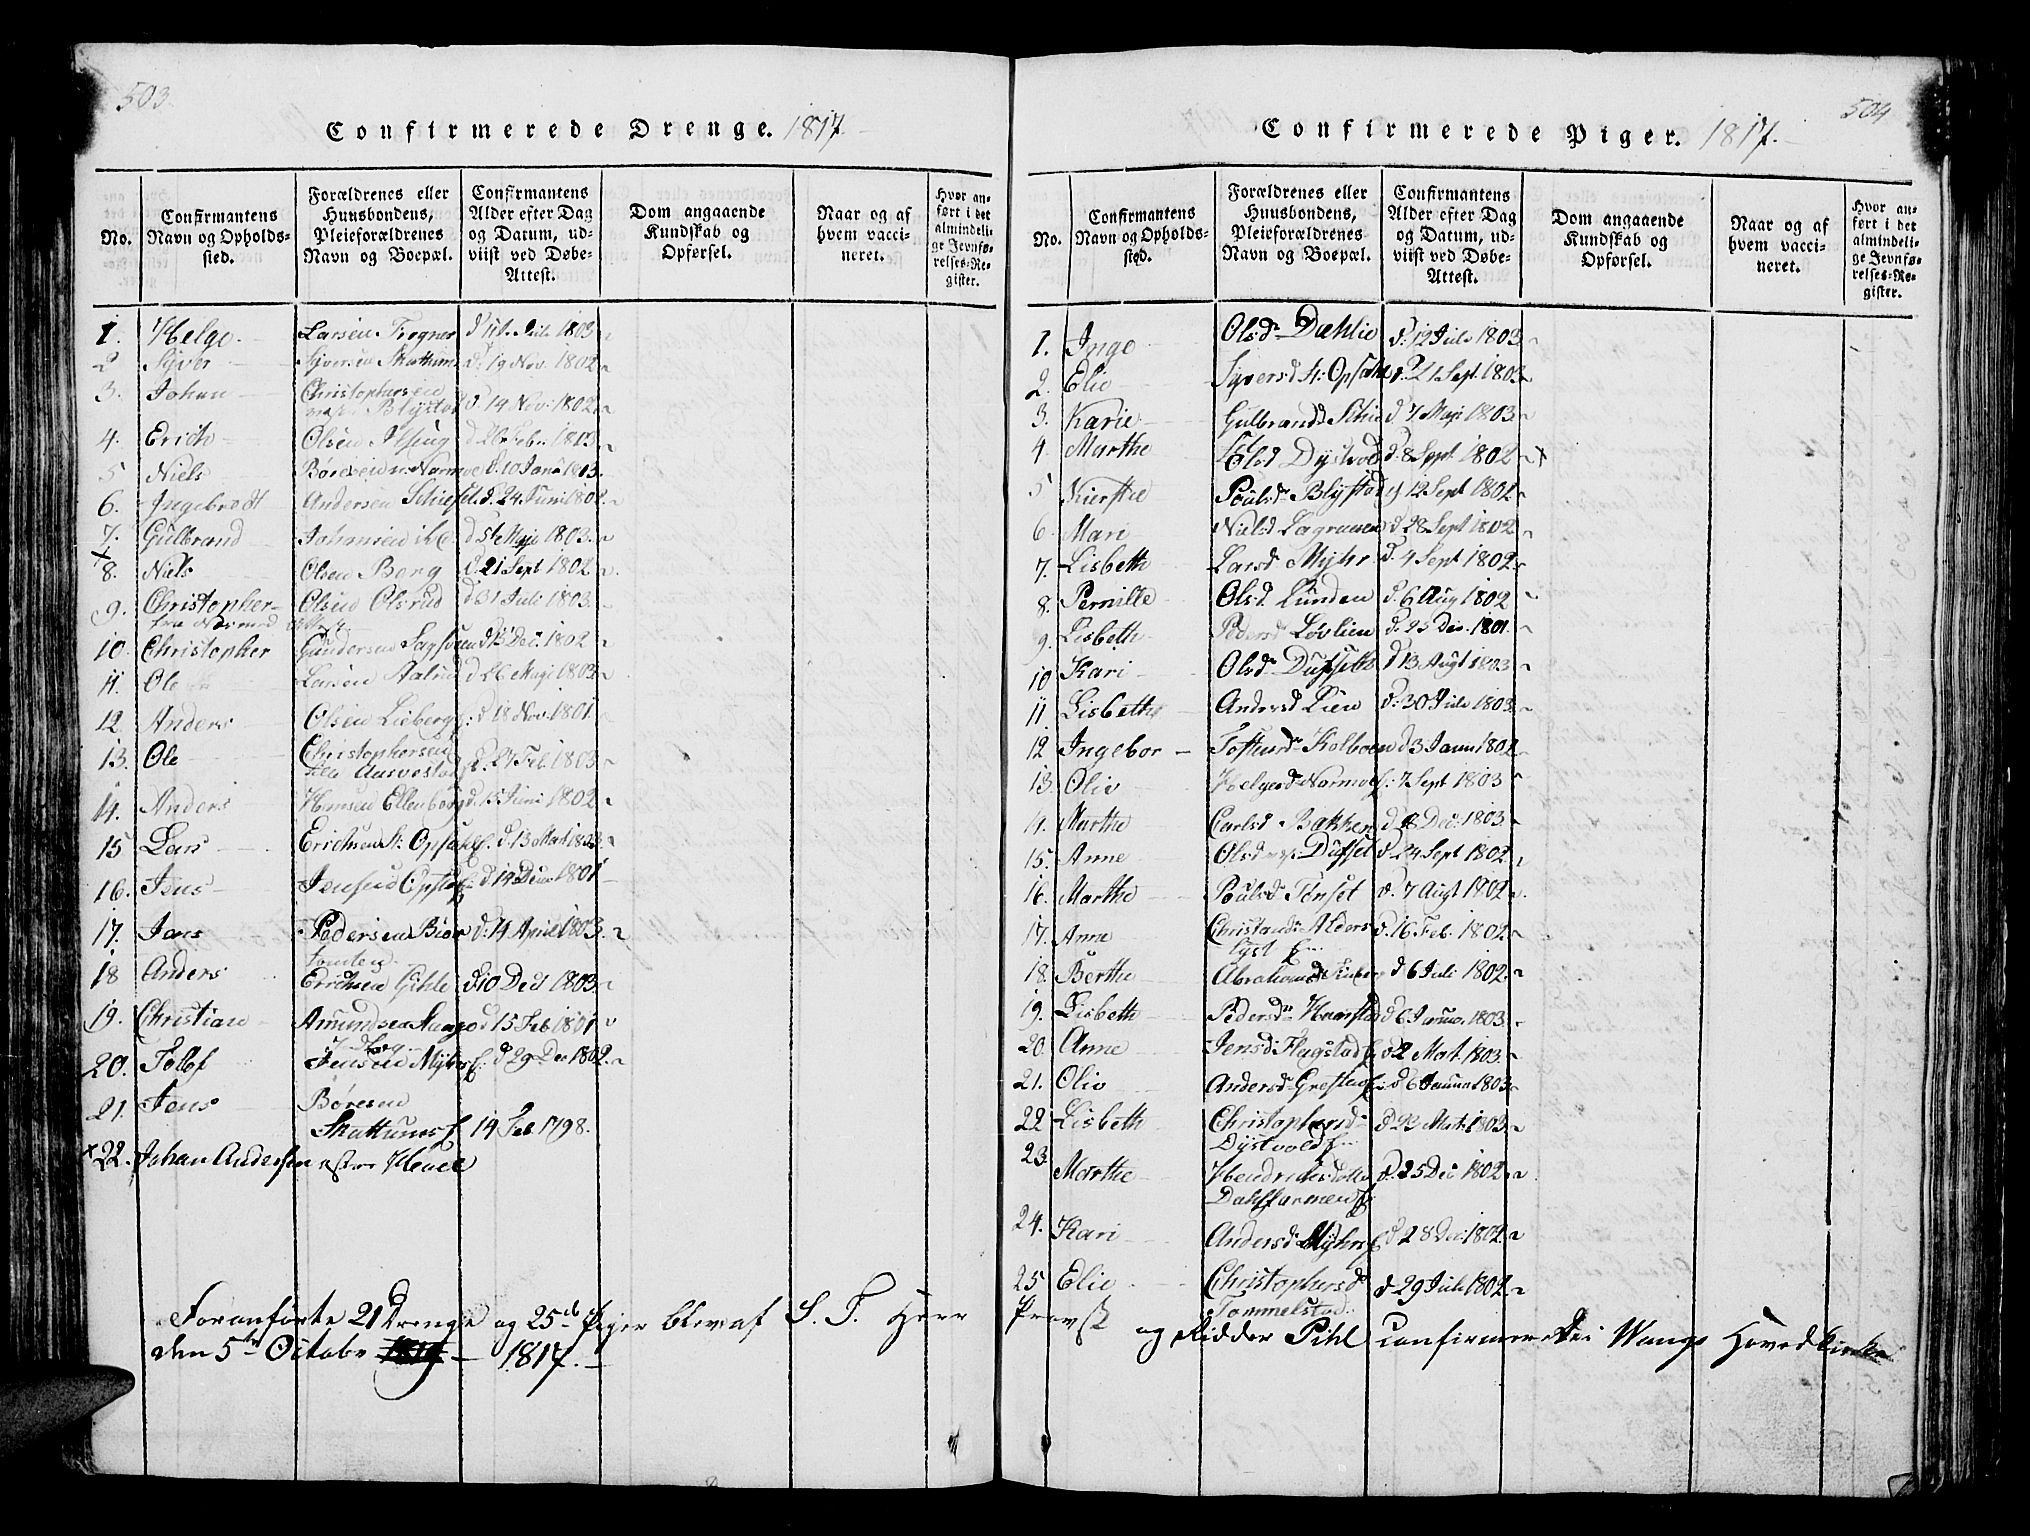 503.
Confirmerede Drenge. 1817.
No.
Confirmantens
Navn og Opholds-
sted.
Forældrenes eller
Huusbondens,
Pleieforældrenes
Navn og Boepæl.
Confirmantens
Alder efter Dag
og Datum, ud-
viist ved Døbe-
Attest.
Dom angaaende
Kundskab og
Opførsel.
Naar og af
hvem vacci-
neret.
Hvor an-
ført i det
almindeli-
ge Jevnfø-
relses-Re-
gister.
1. Helge Larsen Trogner Juli 1803
2 Syver Syversen Skattum d. 19 Nov. 1802
3. Johan Christophersen
Blystad d. 14 Nov. 1802
4. Erich Olsen d 26 Febr. 1803
5 Niels Børresen Normoe d. 10 Janu 1803.
6. Ingebredt Andersen d. 24 Juni 1802
7. Gulbrand Johansen d 5te Maji 1803.
8. Niels Olsen Berg d. 21 Sept 1802
9. Christopher Olsen Olsrud d 31 Juli 1803.
10. Christopher Gundersen Sagsveen Dec. 1802
11. Ole Larsen d 26 Maji 1803
12. Anders Olsen Lieberg d 18 Nov. 1801.
13. Ole Christophersen
Aarvestad d. 27 Feb. 1803
14. Anders Hansen Ellenborg d. 15 Juni 1802
15 Lars Erichsen St: Opsahl d. 13 Mart 1803
16. Jens Jensen d 14 Dec. 1801
17. Jens Pedersen Biør d. 14 April 1803.
tomten
18 Anders Erichsen Gihle d 10 Dec 1803
19. Christian Amundsen d 15 Feb 1801
20. Tolof Jensen Myhrs E. d 29 Dec 1802.
21. Jens Børesen
Skattums E 14 Feb. 1798.
22. Johan Andersen Houel
Foranførte 21 Drenge og 25de Piger blev af S. T. Herr
den 5te Octobr 1817.
504
Confirmerede Piger. 1817.
No.
Confirmantens
Navn og Opholds-
sted.
Forældrenes eller
Huusbondens,
Pleieforældrenes
Navn og Boepæl.
Confirmantens
Alder efter Dag
og Datum, ud-
viist ved Døbe-
Attest.
Dom angaaende
Kundskab og
Opførsel.
Naar og af
hvem vacci-
neret.
Hvor an-
ført i det
almindeli-
ge Jevnfø-
relses-Re-
gister.
1. Inge Olsd Dæhlie d. 12 Juli 1803
2. Elie Syversd St: Opsahl d. 21 Sept. 1803
3. Karie Gulbrandsd d 7 Maji 1803
4 Marthe Olsd Dystvold d. 8 Sept 1802
5 Kierstie Poulsd Blystad d 12 Sept 1802
6. Mari Nielsd d 28 Sept 1802
7. Lisbeth Larsd Myhr d. 4 Sept 1802
8. Pernille Olsd. Lunden d. 6 Aug 1802
9. Lisbeth Pedersd Løvlien d. 25 Dec. 1801.
10 Kari Olsd Dufseth d 13 Augt 1803
11 Lisbeth Andersd Lien d. 30 Juli 1803
12 Ingebor Tostensd Kolboen d 3 Janu 1802
13. Oliv Helgesd Normoe 7 Sept 1803
14. Marthe Carlsd Bakken d 8 Dec. 1803
15. Anne Olsd Dufset d. 24 Sept 1802
16. Marthe Poulsd Tønset d. 7 Augt 1802
17. Anne Christiansd Alders d. 16 Feb. 1802
lyst E.
18. Berthe Abrahamsd d 6 Juli 1802
19. Lisbeth Pedersd Harstad d 6 Janua. 1803
20. Anne Jensd: Flagstad E d 2 Mart. 1803
21. Oliv Andersd Grefstad E: d 6 Janua 1803
22 Lisbeth Christophersd d Mart. 1803
Dystvold E
23. Marthe d. 25 Dec 1802
24. Kari Andersd Myhrs E d 28 Dec. 1802
25 Elie Christophersd d 29 Juli 1802
Tommelstad.
Provst og Ridder Pihl Confirmerede i Wangs Hovedkirke